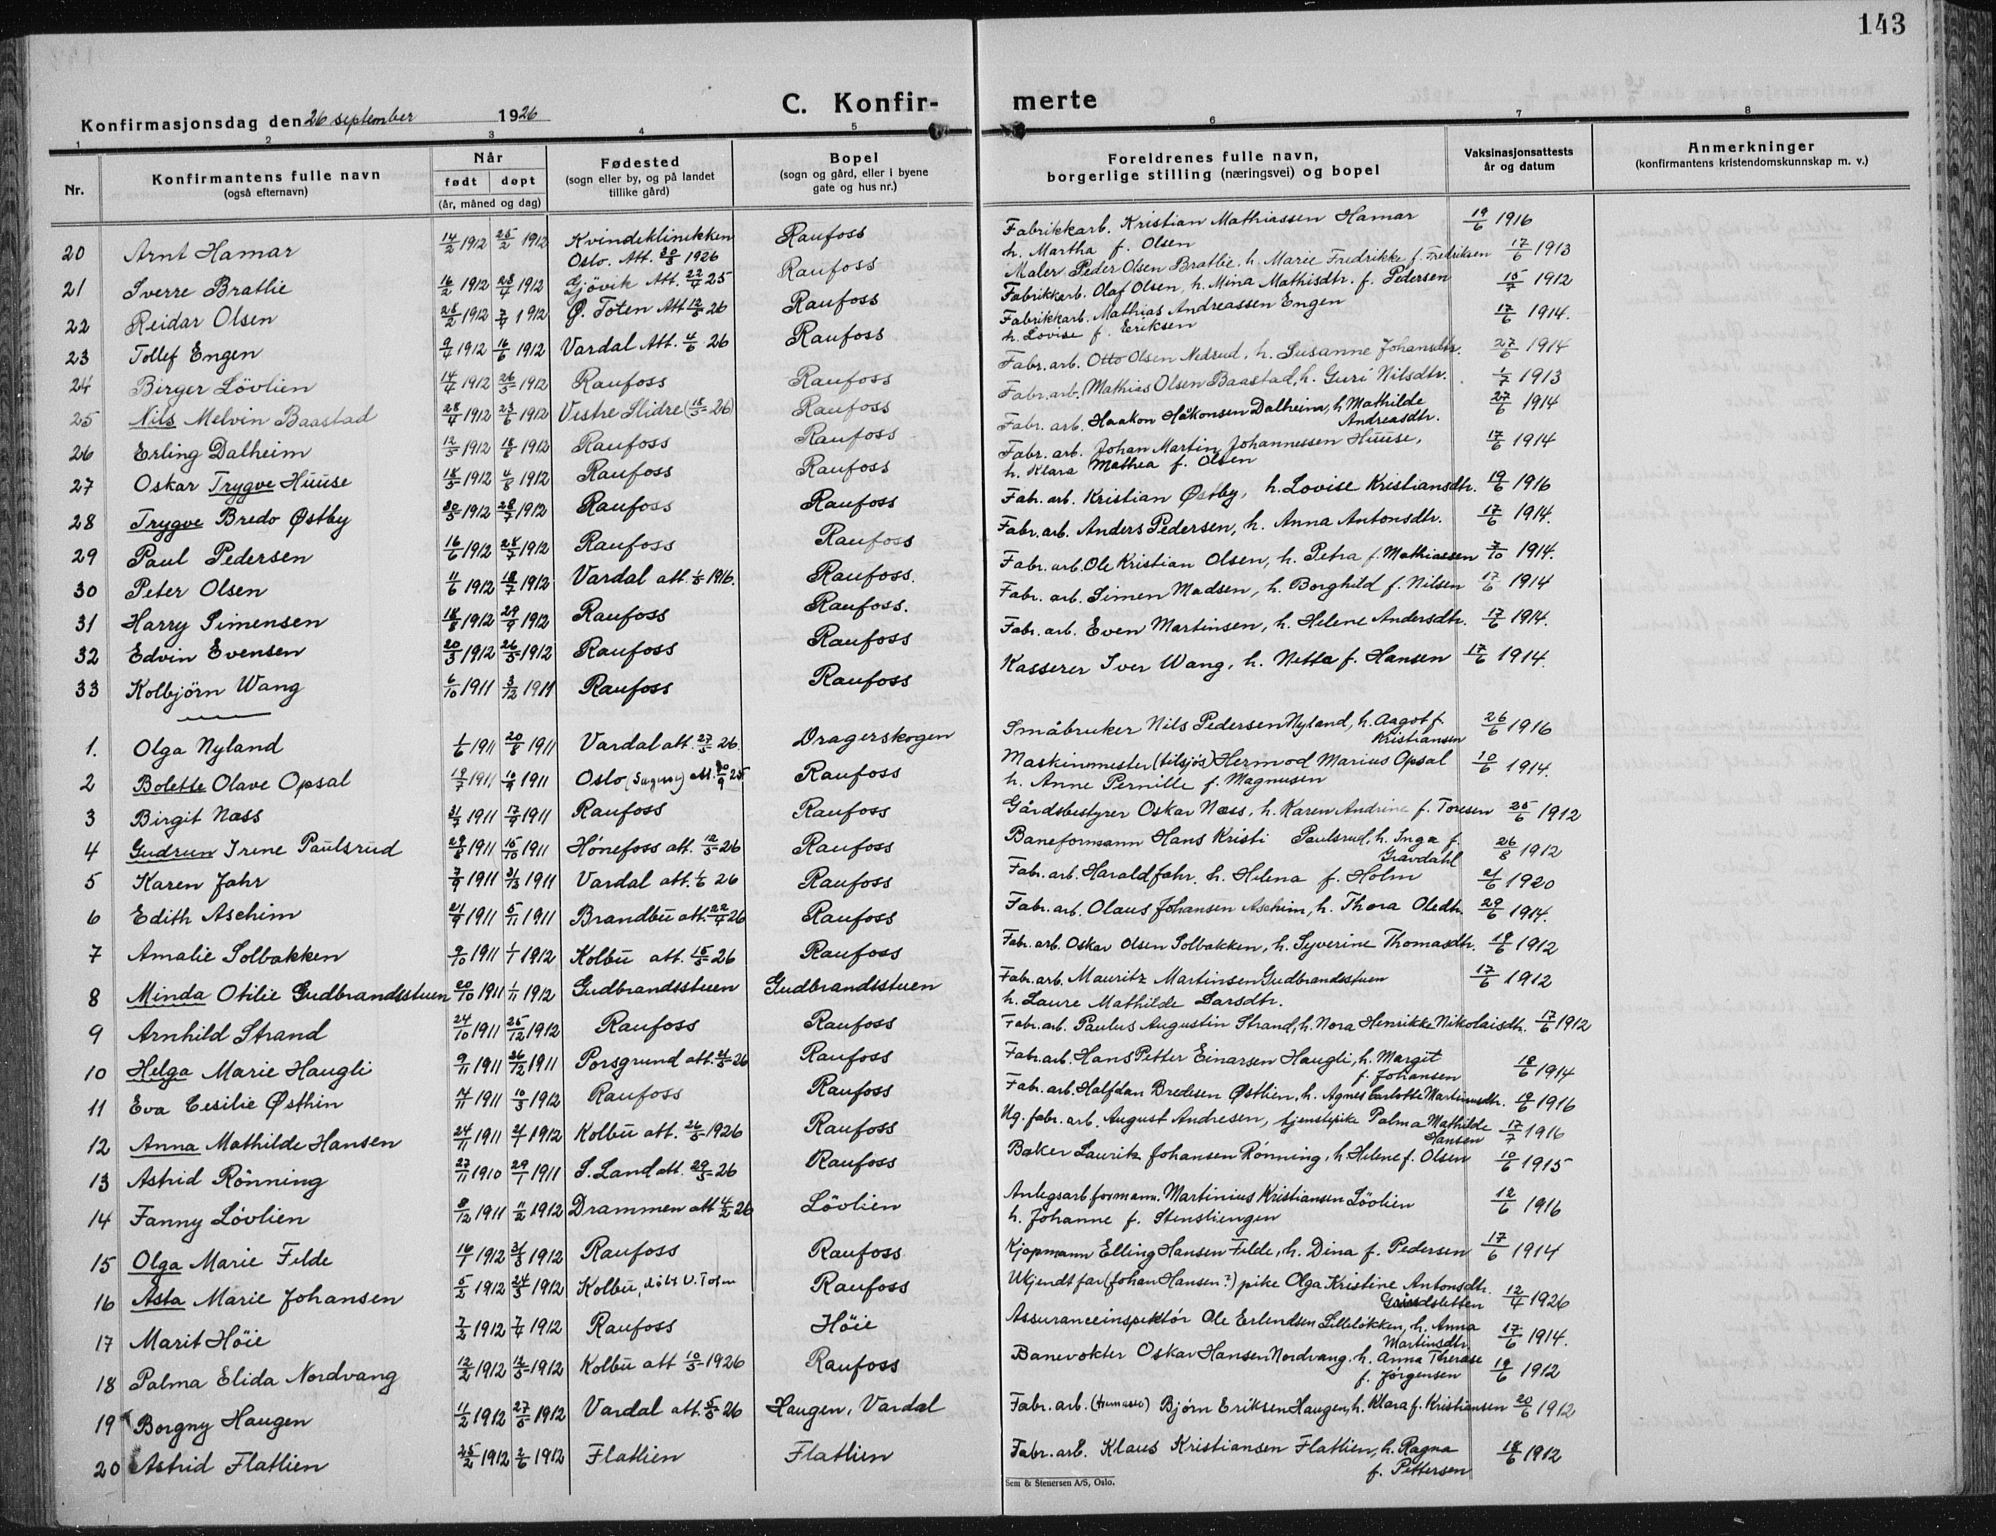 143
C. Konfir- merte
Konfirmasjonsdag den 26 september 1926
1 2 3 4 5 6 7 8
Nr.
Konfirmantens fulle navn
(også efternavn)
Når
født døpt
(år, måned og dag)
Fødested
(sogn eller by, og på landet
tillike gård)
Bopel
(sogn og gård, eller i byene
gate og hus nr.)
Foreldrenes fulle navn,
borgerlige stilling (næringsvei) og bopel
Vaksinasjonsattests
år og datum
Anmerkninger
(konfirmantens kristendomskunnskap m. v.)
20 Arnt Hamar 14/2 1912 25/2 1912 Kvindeklinikken Raufoss Fabrikkarb. Kristian Mathiassen Hamar 19/6 1916
Oslo. Att. 1926 h. Martha f. Olsen
21 Sverre Bratlie 16/2 1912 28/4 1912 Gjövik Att. 22/4 25 Raufoss Maler Peder Olsen Bratlie h. Marie Fredrikke f. Fredriksen 17/6 1913
22 Reidar Olsen 28/2 1912 7/4 1912 Ø. Toten Att 26 Raufoss Fabrikkarb. Olaf Olsen, h. Mina Mathisdtr. f. Pedersen 15/7 1912
23 Tollef Engen 9/4 1912 16/6 1912 Vardal Att. 4/6 26 Raufoss Fabrikkarb. Mathias Andreassen Engen 17/6 1914.
h. Lovise f. Eriksen
24 Birger Lövlien 14/4 1912 26/5 1912 Raufoss Raufoss Fabr. arb. Otto Olsen Nedrud, h. Susanne Johansdtr. 27/6 1914
25 Nils Melvin Baastad 28/4 1912 23/6 1912 Vestre Slidre (18/5 26) Raufoss Fabr. arb. Mathias Olsen Baastad, h. Guri Nilsdtr. 1/7 1913
26 Erling Dalheim 12/5 1912 18/8 1912 Raufoss Raufoss Fabr. arb. Haakon Håkonsen Dalheim, h Mathilde 27/6 1914
Andreasdtr.
27 Oskar Trygve Huuse 18/5 1912 4/8 1912 Raufoss Raufoss Fabr. arb. Johan Martin Johannessen Huuse, 17/6 1914
h. Klara Mathea f. Olsen
28 Trygve Bredo Østby 30/5 1912 28/7 1912 Raufoss Raufoss Fabr. arb. Kristian Østby, h. Lovise Kristiansdtr. 19/6 1916
29 Paul Pedersen 16/6 1912 28/7 1912 Raufoss Raufoss Fabr. arb. Anders Pedersen, h. Anna Antonsdtr. 17/6 1914.
30 Peter Olsen 11/6 1912 18/7 1912 Vardal att. 1916. Raufoss. Fabr. arb. Ole Kristian Olsen, h. Petra f. Mathiassen 7/10 1914.
31 Harry Simensen 18/8 1912 29/9 1912 Raufoss Raufoss. Fabr. arb. Simen Madsen, h. Borghild f. Nilsen 17/6 1914
32 Edvin Evensen 20/3 1912 26/5 1912 Raufoss Raufoss Fabr. arb. Even Martinsen, h. Helene Andersdtr. 17/6 1914.
33 Kolbjörn Wang 6/10 1911 3/12 1911 Raufoss Raufoss Kasserer Iver Wang, h. Netta f. Hansen 17/6 1914.
1. Olga Nyland 1/6 1911 20/8 1911 Vardal att. 27/5 26. Dragerskogen Småbruker Nils Pedersen Nyland, h. Aagot f. 26/6 1916
Kristiansen
2 Bolette Olave Opsal 1911 10/9 1911 Oslo att. 25 Raufoss Maskinmester (tilsjøs) Hermod Marius Opsal 10/6 1914.
h. Anne Pernille f. Magnusen
3 Birgit Næss 31/7 1911 17/9 1911 Raufoss Raufoss Gårdsbestyrer Oskar Næss, h. Karen Andrine f. Toresen 25/6 1912
4 Gudrun Irene Paulsrud 29/8 1911 15/10 1911 Hønefoss att. 12/5 26 Raufoss Baneformann Hans Kristi Paulsrud, h. Inga f. 26/8 1912
Gravdahl
5 Karen Jahr 7/9 1911 31/3 1911 Vardal att. 1/6 26 Raufoss Fabr. arb. Harald Jahr. h. Helena f. Holm 21/6 1920
6 Edith Aschim 21/9 1911 5/11 1911 Brandbu att. 22/4 26 Raufoss Fabr. arb. Olaus Johansen Aschim, h. Thora Oledtr. 29/6 1914.
7 Amalie Solbakken 9/10 1911 1/1 1912 Kolbu att. 15/5 26 Raufoss Fabr. arb. Oskar Olsen Solbakken, h. Syverine Thomasdtr. 19/6 1912
8 Minda Otilie Gudbrandsstuen 20/10 1911 1/11 1912 Gudbrandsstuen Gudbrandsstuen Fabr. arb. Mauritz Martinsen Gudbrandsstuen 17/6 1912
h. Laure Mathilde Larsdtr.
9 Arnhild Strand 24/10 1911 25/12 1912 Raufoss Raufoss Fabr. arb. Paulus Augustin Strand, h. Nora Henrikke Nikolaisdtr. 17/6 1912
10 Helga Marie Haugli 9/11 1911 26/12 1911 Porsgrund att. 26 Raufoss Fabr. arb. Hans Petter Einarsen Haugli, h. Margit 18/6 1914
f. Johansen
11 Eva Cesilie Østhin 1911 10/3 1912 Raufoss Raufoss Fabr. arb. Halfdan Bredesen Østlien, h. Agnes Carlotte Martinusdtr. 19/6 1916
12 Anna Mathilde Hansen 24/11 1911 21/1 1912 Kolbu att. 26/5 1926 Raufoss Ug. fabr. arb. August Andresen, tjenstepike Palma Mathilde 17/7 1916
Hansen
13 Astrid Rönning 27/11 1910 29/1 1911 S. Land att. 29/5 26 Raufoss Baker Lauritz Johansen Rönning, h. Helene f. Olsen 10/6 1915
14 Fanny Lövlien 8/12 1911 11/2 1912 Drammen att 4/2 26 Lövlien Anlegsarb. formann. Martinius Kristiansen Lövlien 12/6 1916
h. Johanne f. Stensliengen
15 Olga Marie Filde 16/1 1912 31/3 1912 Raufoss Raufoss Kjøpmann Elling Hansen Filde, h. Dina f. Pedersen 17/6 1914
16 Asta Marie Johansen 5/2 1912 24/3 1912 Kolbu, döbt V. Toten Raufoss Ukjendt far (Johan Hansen?) pike Olga Kristine Antonsdtr. 12/4 1926
17 Marit Höie 7/2 1912 7/4 1912 Raufoss Höie Assuranceinspektör Ole Erlendsen Lilleløkken, h. Anna 17/6 1914.
Martinsdtr.
18 Palma Elida Nordvang 12/2 1912 1912 Kolbu att 10/5 1926 Raufoss Banevokter Oskar Hansen Nordvang. h. Anna Therese 19/6 1912
f. Jörgensen
19 Borgny Haugen 11/2 1912 27/5 1912 Vardal att. 5/5 26 Haugen, Vardal Fabr. arb. Bjørn Eriksen Haugen, h. Klara f. Kristiansen 20/6 1912
20 Astrid Flatlien 25/2 1912 2/6 1912 Flatlien Flatlien Fabr. arb. Klaus Kristiansen Flatlien, h. Ragna 18/6 1912
f. Pettersen
Sem & Stenersen A/S, Oslo.